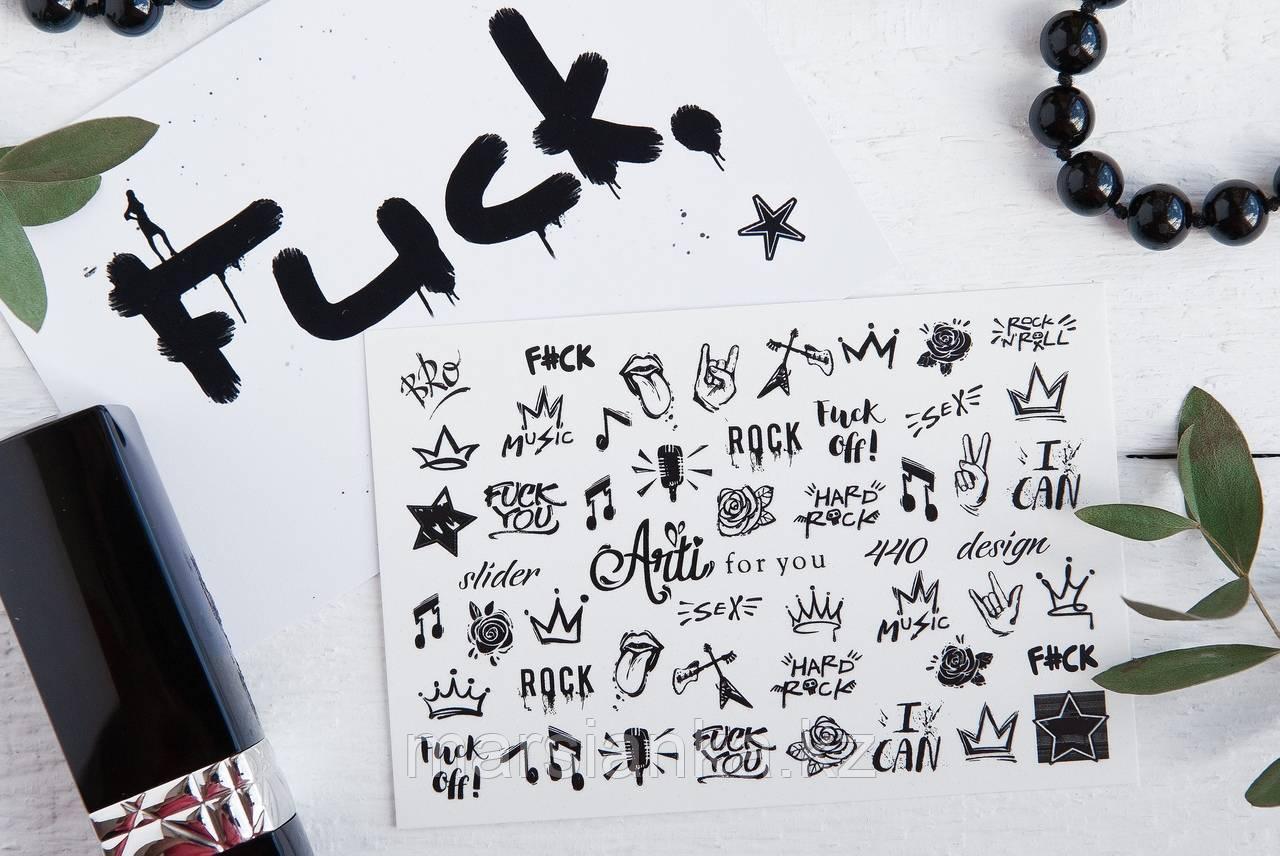 Fuck.
BRO F#CK ROCK N'ROLL
MUSIC ROCK Fuck Off! SEX
FUCK YOU HARD ROCK I CAN
slider Arti for you 440 design
SEX MUSIC
ROCK HARD ROCK F#CK
Fuck Off! FUCK YOU I CAN
marsianka.kz